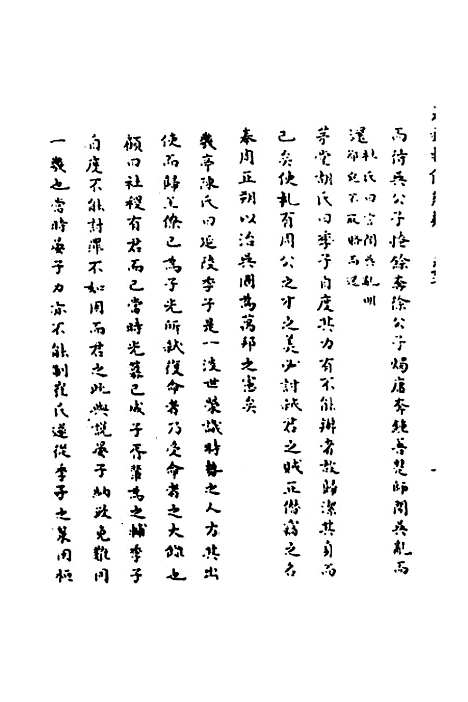 而待吳公子掩餘奔徐公子燭庸奔鍾吾楚師聞吳亂而
還
杜氏曰言聞吳亂明
郤宛不取賂而還
茅堂胡氏曰季子自度其力有不能辦者故歸潔其身而
已矣使札有周公之才之美必討弒君之賊正僭竊之名
奉周正朔以治吳國為萬邦之憲矣
幾亭陳氏曰延陵季子是一淡世榮識時勢之人方其出
使而歸王僚已為子光所弒復命者乃受命者之大讎也
顧曰社稷有君而已當時光篡已成子胥輩為之輔季子
自度不能討罪不如因而君之此與說晏子納政免難同
一幾也當時晏子力亦不能制崔氏遂從季子之策因桓